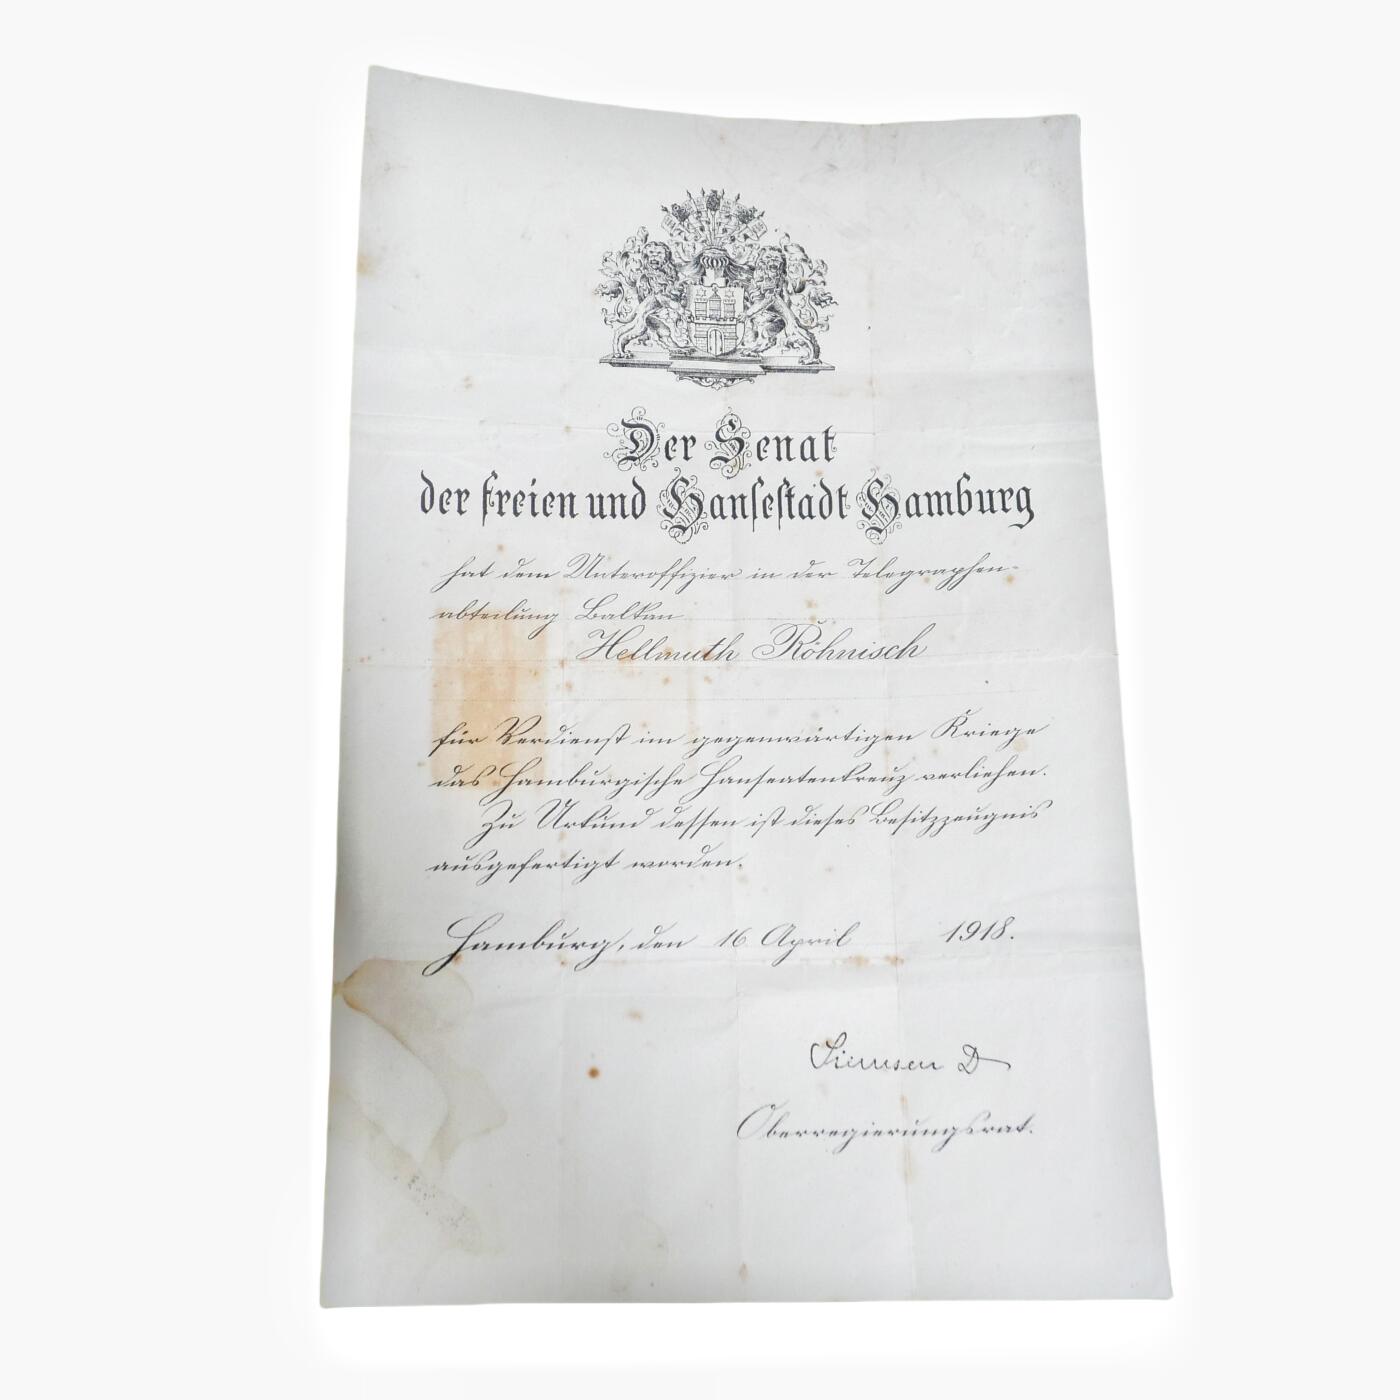 Der Senat
der freien und Hansestadt Hamburg
hat dem Unteroffizier in der Telegraphen-
abteilung Balkan
Hellmuth Röhnisch
für Verdienst im gegenwärtigen Kriege
das Hamburgische Hanseatenkreuz verliehen.
Zu Urkund dessen ist dieses Besitzzeugnis
ausgefertigt worden.
Hamburg, den 16 April 1918.
Siemsen D
Oberregierungsrat.